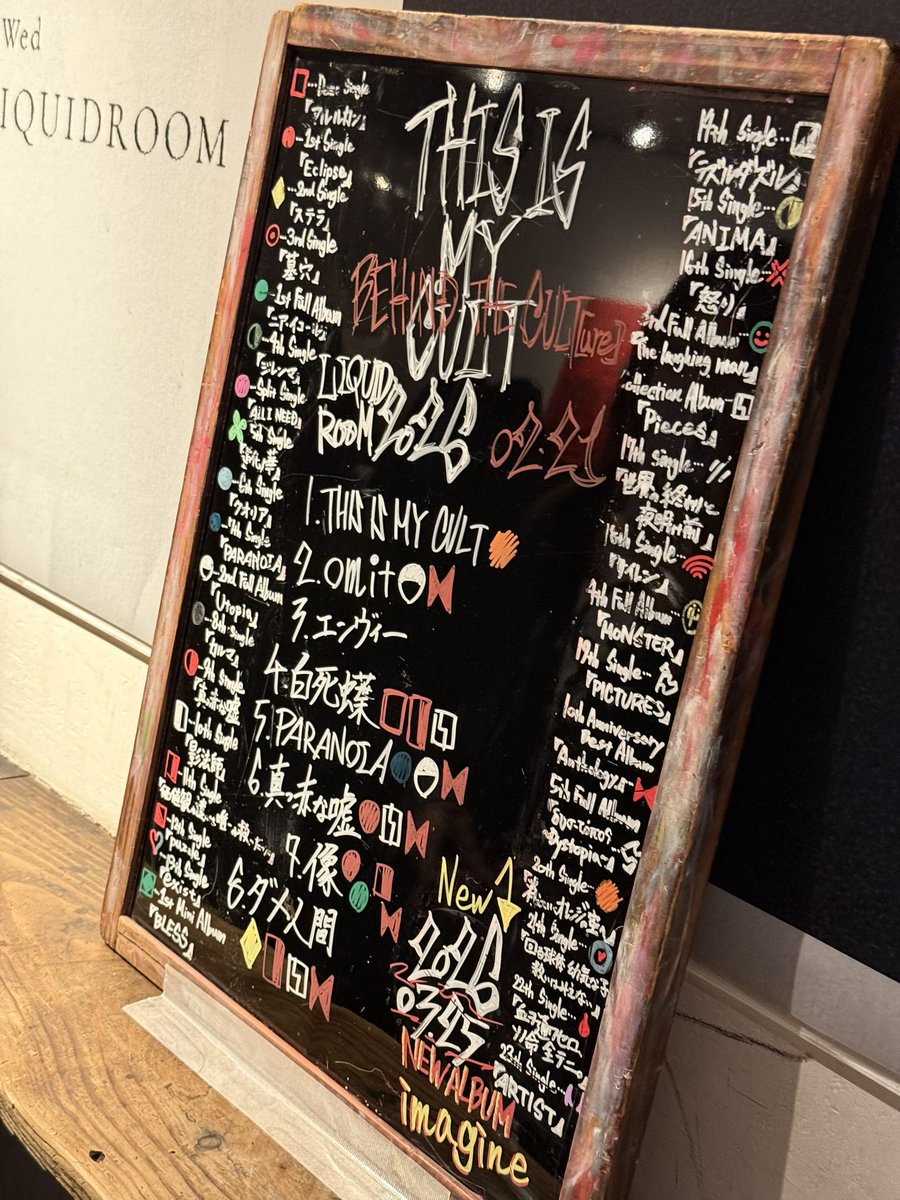 Wed
IQUIDROOM
THIS IS
MY
CULT
BEHIND THE CULT[ure]
LIQUID
ROOM
2026
02.21
1.THIS IS MY CULT
2.omit
3.エンヴィー
4.白死蝶
5.PARANOIA
6.真っ赤な嘘
7.像
8.ダメ人間
New
2026
03.25
NEW ALBUM
imagine
Single
…1st Single
『Eclipse』
…2nd Single
『ステラ』
…3rd Single
『墓穴』
…1st Full Album
『ニアイコール』
…4th Single
『ジレンマ』
…Split Single
『AiLI NEED』
5th Single
…6th Single
『クオリア』
…7th Single
『PARANOIA』
…2nd Full Album
『Utopia』
…8th Single
『カルマ』
…9th Single
『真っ赤な嘘』
…10th Single
『影法師』
…11th Single
…12th Single
『puzzle』
…13th Single
『exist』
…1st Mini Album
『BLESS』
14th Single…
『ラズルダズル』
15th Single…
『ANIMA』
16th Single…
『怒り』
3rd Full Album…
『the laughing man』
Collection Album…
『Pieces』
17th Single…
『世界の終わりと
夜明け前』
18th Single…
『サイレン』
4th Full Album…
『MONSTER』
19th Single…
『PICTURES』
10th Anniversary
Best Album
『Anthology』
5th Full Album
Dystopia
20th Single…
21th Single…
22th Single…
23th Single…
『ARTIST』